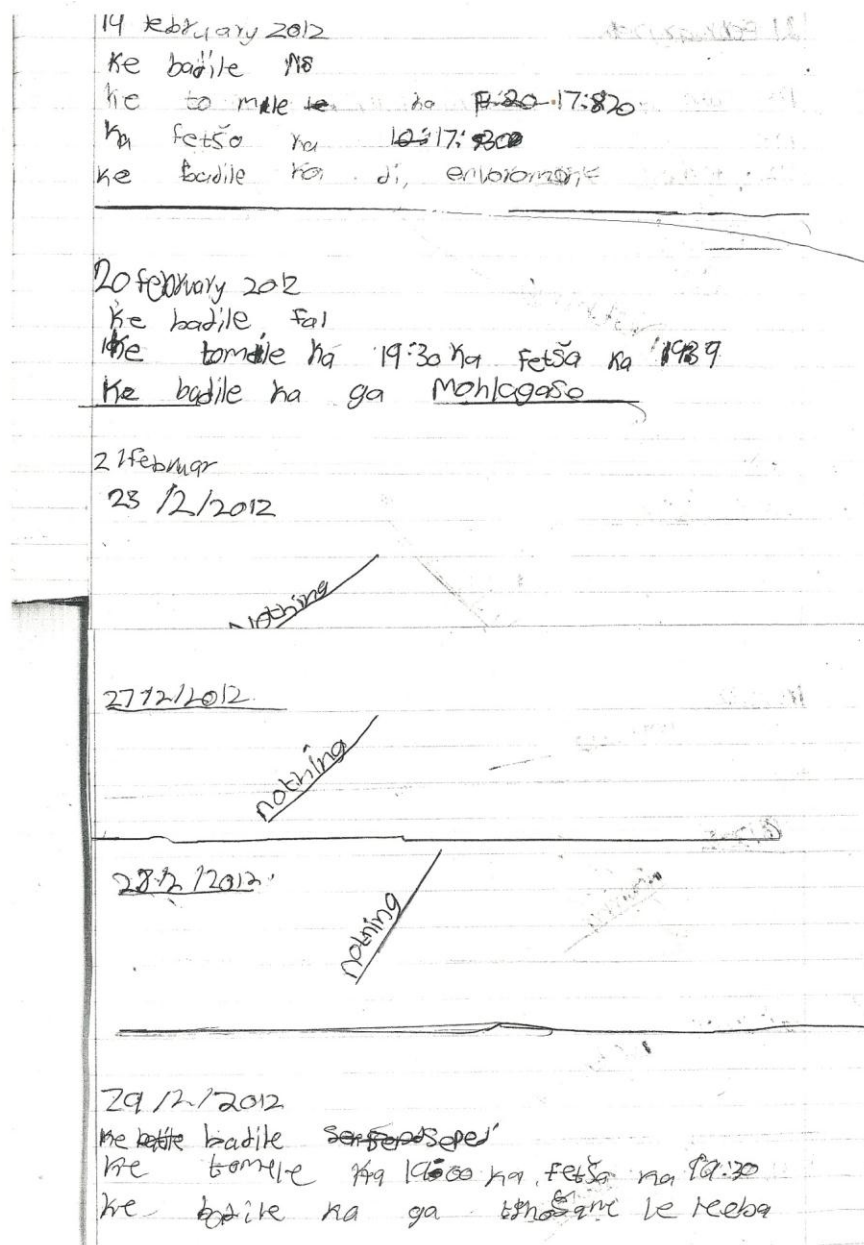 14 February 2012
Ke badile NS
ke to mele ka 17:20
Ka fetšo ka 17:300
ke badile ka di, enboromont
20 february 2012
Ke badile fal
Ke tomele ka 19:30 ka fetša ka 1939
Ke badile ka ga Mohlagase
21februar
23 /2/2012
Nothing
27/2/2012
nothing
28/2/2012
nothing
29/2/2012
Ke badile Sepedi
ke tomele ka 19:00 ka fetša ka 19:30
ke badile ka ga le leeba